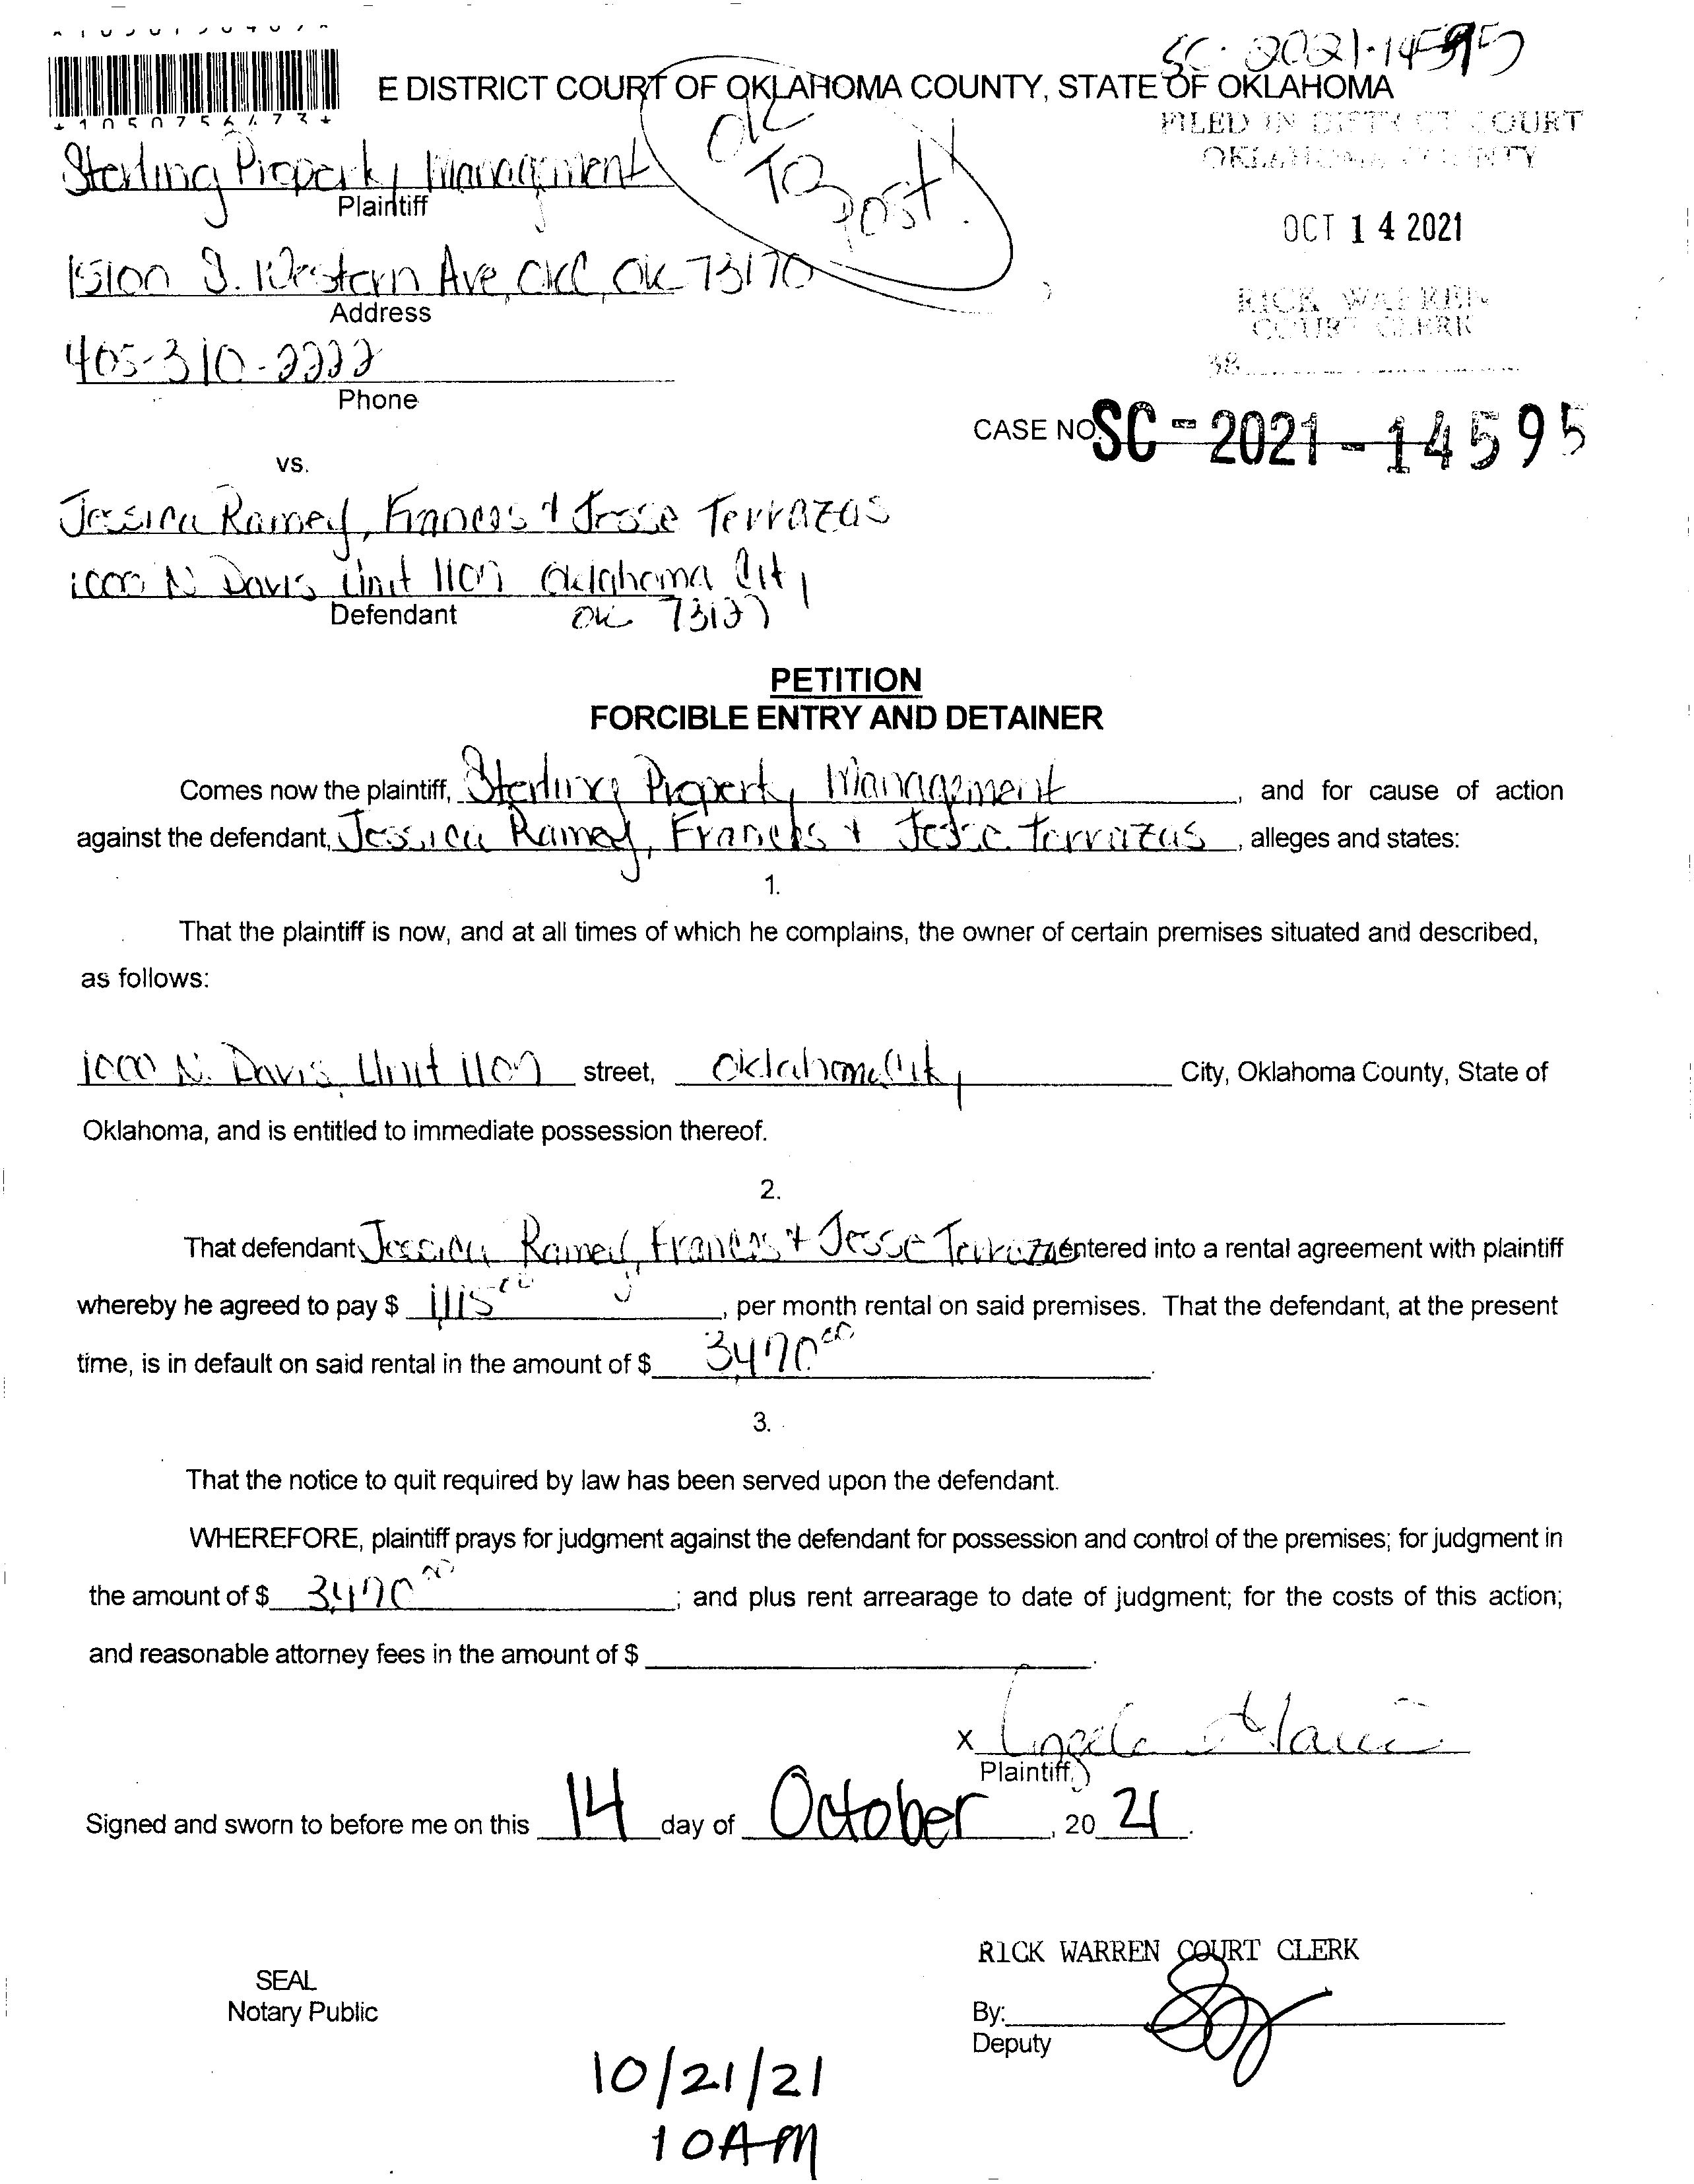 SC-2021-14595
E DISTRICT COURT OF OKLAHOMA COUNTY, STATE OF OKLAHOMA
*1050756473*
FILED IN DISTRICT COURT
OKLAHOMA COUNTY
OK
To
Post!
Sterling Property Management
Plaintiff
OCT 14 2021
15100 S. Western Ave, OKC, OK 73170
Address
RICK WARREN
COURT CLERK
38
405-310-2222
Phone
CASE NO. SC-2021-14595
vs.
Jessica Ramey, Frances & Jesse Terrazas
1000 N Davis Unit 1107 Oklahoma City
Defendant OK 73127
PETITION
FORCIBLE ENTRY AND DETAINER
Comes now the plaintiff, Sterling Property Management, and for cause of action
against the defendant, Jessica Ramey, Frances & Jesse Terrazas, alleges and states:
1.
That the plaintiff is now, and at all times of which he complains, the owner of certain premises situated and described,
as follows:
1000 N. Davis Unit 1107 street, Oklahoma City City, Oklahoma County, State of
Oklahoma, and is entitled to immediate possession thereof.
2.
That defendant, Jessica Ramey, Frances & Jesse Terrazas entered into a rental agreement with plaintiff
whereby he agreed to pay $ 1,115.00, per month rental on said premises. That the defendant, at the present
time, is in default on said rental in the amount of $ 3,470.00.
3.
That the notice to quit required by law has been served upon the defendant.
WHEREFORE, plaintiff prays for judgment against the defendant for possession and control of the premises; for judgment in
the amount of $ 3,470.00; and plus rent arrearage to date of judgment; for the costs of this action;
and reasonable attorney fees in the amount of $
X Angela
Plaintiff
Signed and sworn to before me on this 14 day of October, 2021.
RICK WARREN COURT CLERK
SEAL
Notary Public
By:
Deputy
10/21/21
10AM